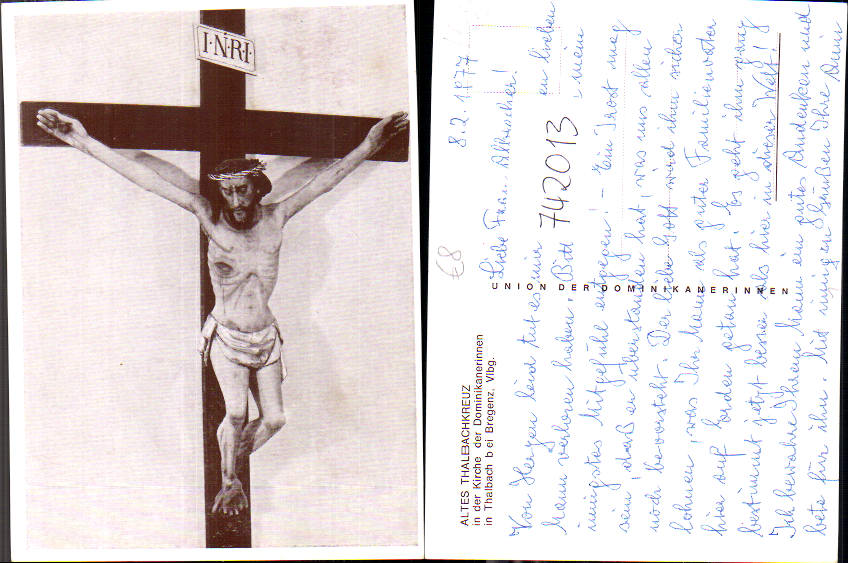 I·N·R·I·
8.2.1977
€8
Liebe Frau
Von Herzen leid tut es mir en lieben
Mann verloren haben. Bitt 742013 meine
innigstes Mitgefühl entgegen! – Ein Trost mag
sein, daß er überstanden hat, was uns allen
noch bevorsteht. Der liebe Gott wird ihm sicher
lohnen, was Ihr Mann als guter Familienvater
hier auf Erden getan hat. Es geht ihm ganz
bestimmt jetzt besser als hier in dieser Welt!
Ich bewahre Ihrem Mann ein gutes Andenken und
bete für ihn. Mit innigen Grüßen Ihre
UNION DER DOMINIKANERINNEN
ALTES THALBACHKREUZ
in der Kirche der Dominikanerinnen
in Thalbach bei Bregenz, Vlbg.